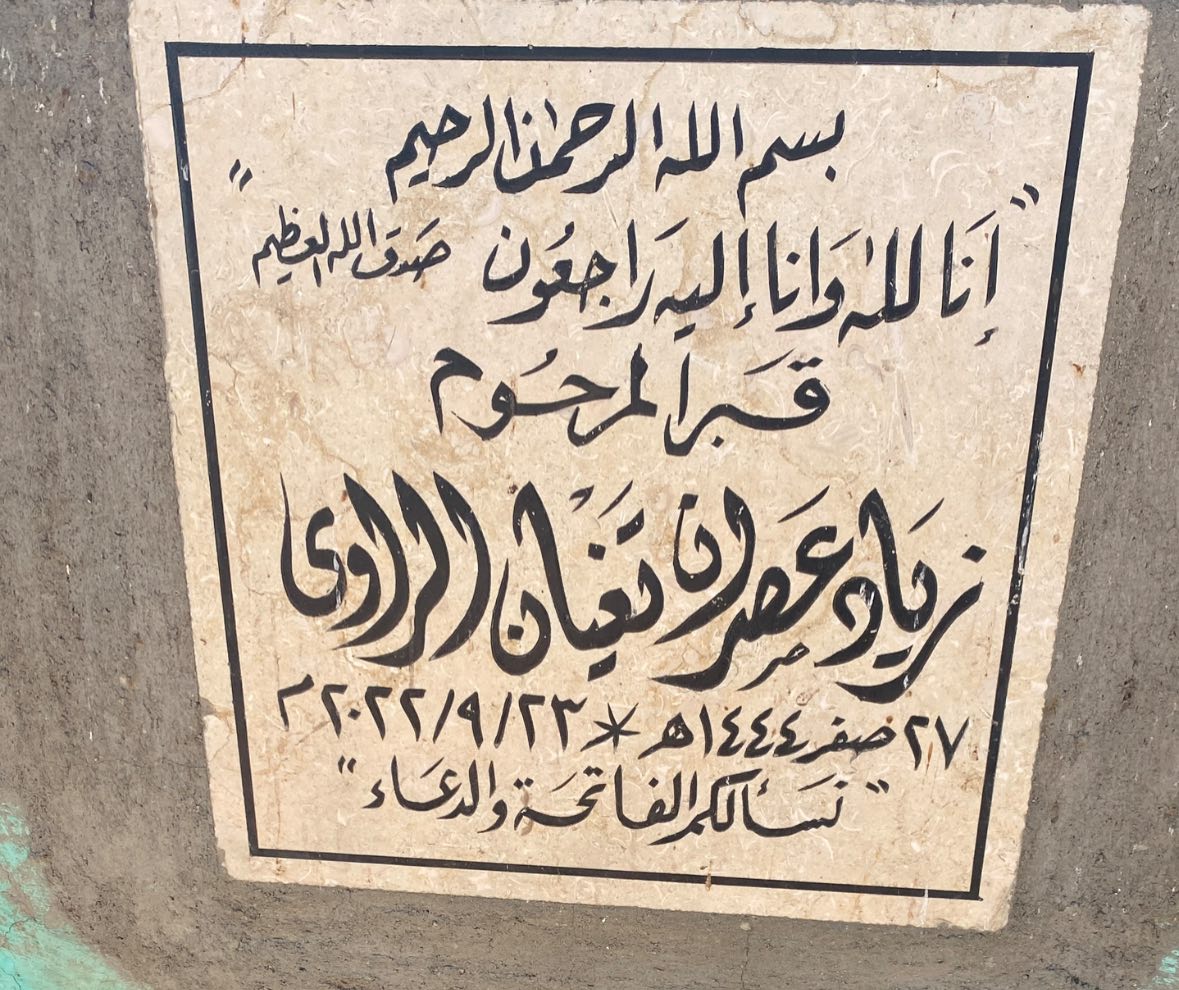 بسم الله الرحمن الرحيم
"إنا لله وانا إليه راجعون صدق الله العظيم"
قبر المرحوم
زياد عصر ان تغيان الراوى
٢٧ صفر ١٤٤٤هـ * ٢٣/٩/٢٠٢٢م
"نسألكم الفاتحة والدعاء"